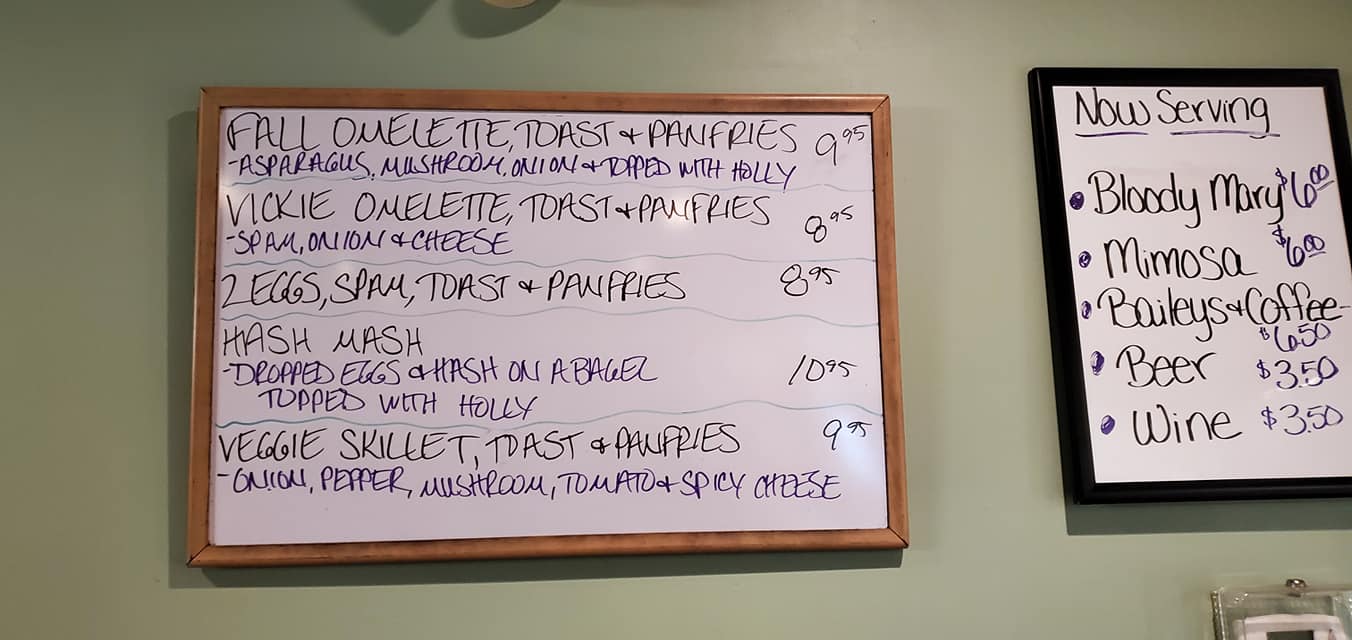 FALL OMELETTE, TOAST & PANFRIES 9.95
-ASPARAGUS, MUSHROOM, ONION & TOPPED WITH HOLLY
VICKIE OMELETTE, TOAST & PANFRIES 8.95
-SPAM, ONION & CHEESE
2 EGGS, SPAM, TOAST & PANFRIES 8.95
HASH MASH
-DROPPED EGGS & HASH ON A BAGEL 10.95
TOPPED WITH HOLLY
VEGGIE SKILLET, TOAST & PANFRIES 9.95
-ONION, PEPPER, MUSHROOM, TOMATO & SPICY CHEESE
Now Serving
• Bloody Mary $6.00
• Mimosa $6.00
• Baileys & Coffee-
$6.50
• Beer $3.50
• Wine $3.50